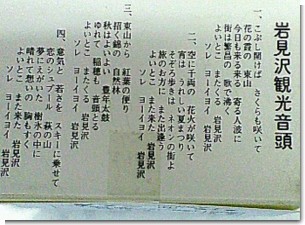 岩見沢観光音頭
一、こぶし開けば さくらも咲いて
花の霞の 東山
今日も来る来る 寄せる人波に
街は繁昌の 歌で沸く
よいとこ またくる 岩見沢
ソレ ヨーイヨイ 岩見沢
二、空に千両の 花火が咲いて
宵はうれしい 夏まつり
そぞろ歩きは ネオンの街よ
旅のお方に また出逢う
よいとこ また来た 岩見沢
ソレ ヨーイヨイ 岩見沢
三、東山から 紅葉の便り
招く錦の 自然林
秋はよいよい 豊年太鼓
ゆれて 稲穂も 音頭とる
よいとこ またくる 岩見沢
ソレ ヨーイヨイ 岩見沢
四、意気と 若さを スキーに乗せて
恋のシュプール 萩の山
夢にえがいた 樹氷の中に
晴れて想いの 胸もすく
よいとこ また来た 岩見沢
ソレ ヨーイヨイ 岩見沢